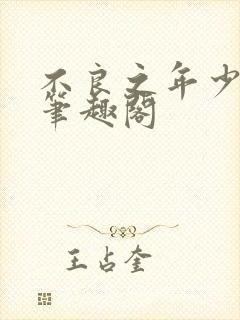 不良之年少
筆趣閣
王占奎